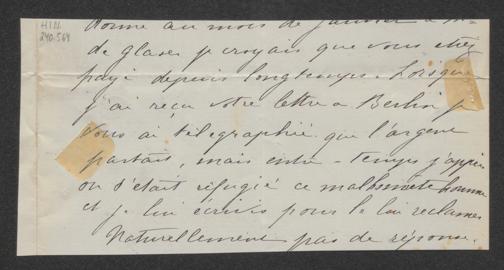 HIN.
240.564
donne au mois de janvier à M.
de glaser je croyais que vous étiez
payé depuis longtemps. Lorsque
j'ai reçu votre lettre a Berlin je
vous ai télégraphié que l'argent
partait, mais entre-temps j'appris
ou s'était réfugié ce malhonnête homme
et je lui écrivis pour le lui réclamer
Naturellement pas de réponse.